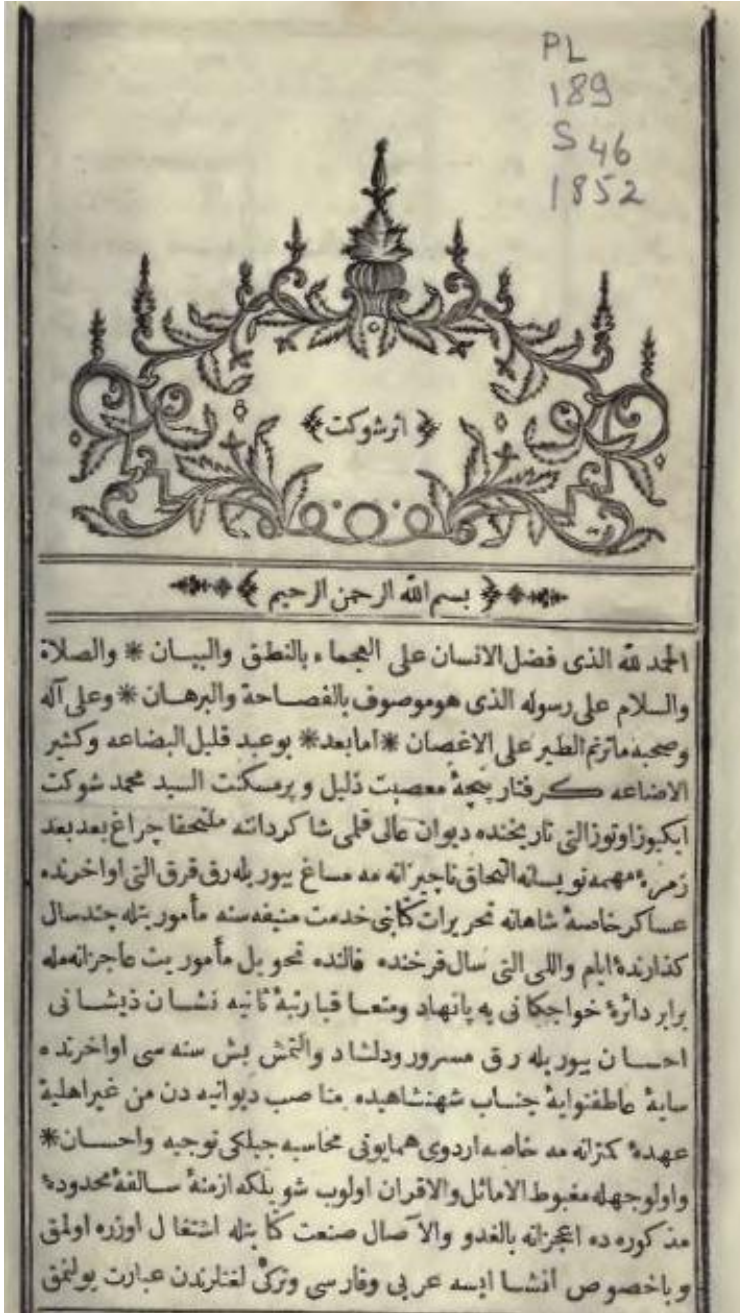 PL
189
S 46
1852
﴿ اثر شوكت ﴾
﴿ بسم الله الرحمن الرحيم ﴾
الحمد لله الذى فضل الانسان على العجماء بالنطق والبيـان * والصلاة
والسلام على رسوله الذى هو موصوف بالفصـاحة والبرهـان * وعلى آله
وصحبه ماترنم الطير على الاغصان * امابعد * بوعبد قليل البضاعه وكثير
الاضاعه كرفتار پنجهٔ معصيت ذليل و پرمسكنت السيد محمد شوكت
ايكيوز اوتوز التى تاريخنده ديوان عالى قلمى شاكرداننه ملتحقا چراغ بعد بعد
زمرهٔ مهمه نويسانه التحاق ناچيزانه مه مساغ بيور يله رق قرق التى اواخرنده
عساكر خاصهٔ شاهانه تحريرات كتابتى خدمت منيفه سنه مأمور يتله چند سال
كذارندهٔ ايام واللى التى سال فرخنده فالنده تحويل مأموريت عاجزانه مله
برابر دائرهٔ خواجكانى يه پانهاد ومتعـاقبا رتبهٔ ثانيه نشـان ذيشـانى
احسـان بيور يله رق مسرور ودلشاد والتمش بش سنه سى اواخرنده
سايهٔ عاطفتوايهٔ جنـاب شهنشاهيده منـاصب ديوانيه دن من غير اهلية
عهدهٔ كمترانه مه خاصه اردوى همايونى محاسبه جيلكى توجيه واحسـان *
واولوجهله مغبوط الاماثل والاقران اولوب شو بلكه ازمنهٔ سـالفهٔ محدودهٔ
مذكوره ده اعجزانه بالغدو والآصال صنعت كتابتله اشتغال اوزره اولمق
وباخصوص انشـا ايسه عربى وفارسى وتركى لغتلرندن عبارت بولنمق